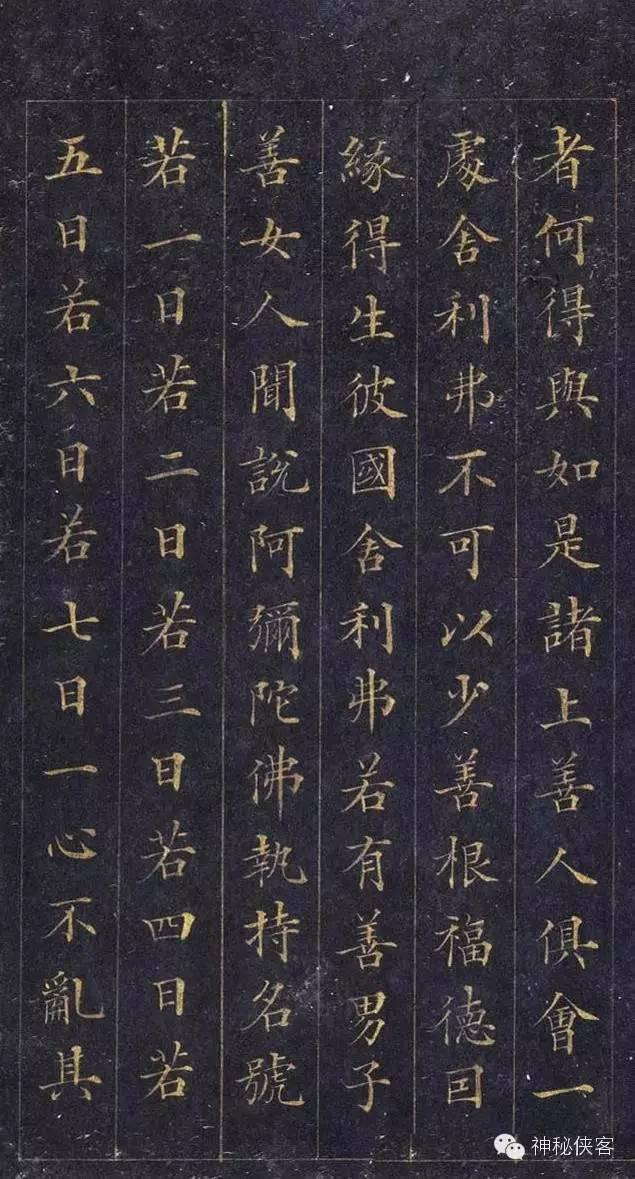 者何得與如是諸上善人俱會一
處舍利弗不可以少善根福德因
緣得生彼國舍利弗若有善男子
善女人聞說阿彌陀佛執持名號
若一日若二日若三日若四日若
五日若六日若七日一心不亂其
神秘侠客